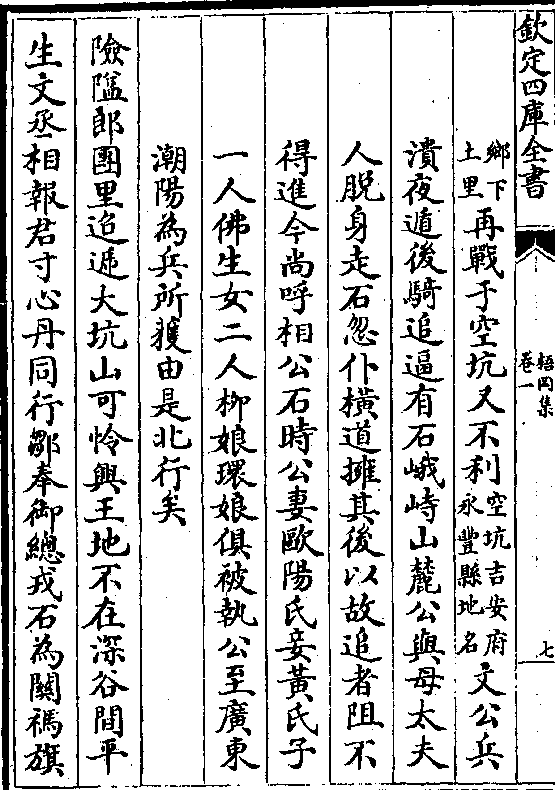 欽定四庫全書
梧岡集
卷一
七
鄉下
土里
再戰于空坑又不利
空坑吉安府
永豐縣地名
文公兵
潰夜遁後騎追逼有石峨峙山麓公與母太夫
人脱身走石忽仆橫道擁其後以故追者阻不
得進今尚呼相公石時公妻歐陽氏妾黃氏子
一人佛生女二人柳娘環娘俱被執公至廣東
潮陽為兵所獲由是北行矣
險隘郎團里迢遞大坑山可憐興王地不在深谷間平
生文丞相報君寸心丹同行鄒奉御總戎石為關禡旗